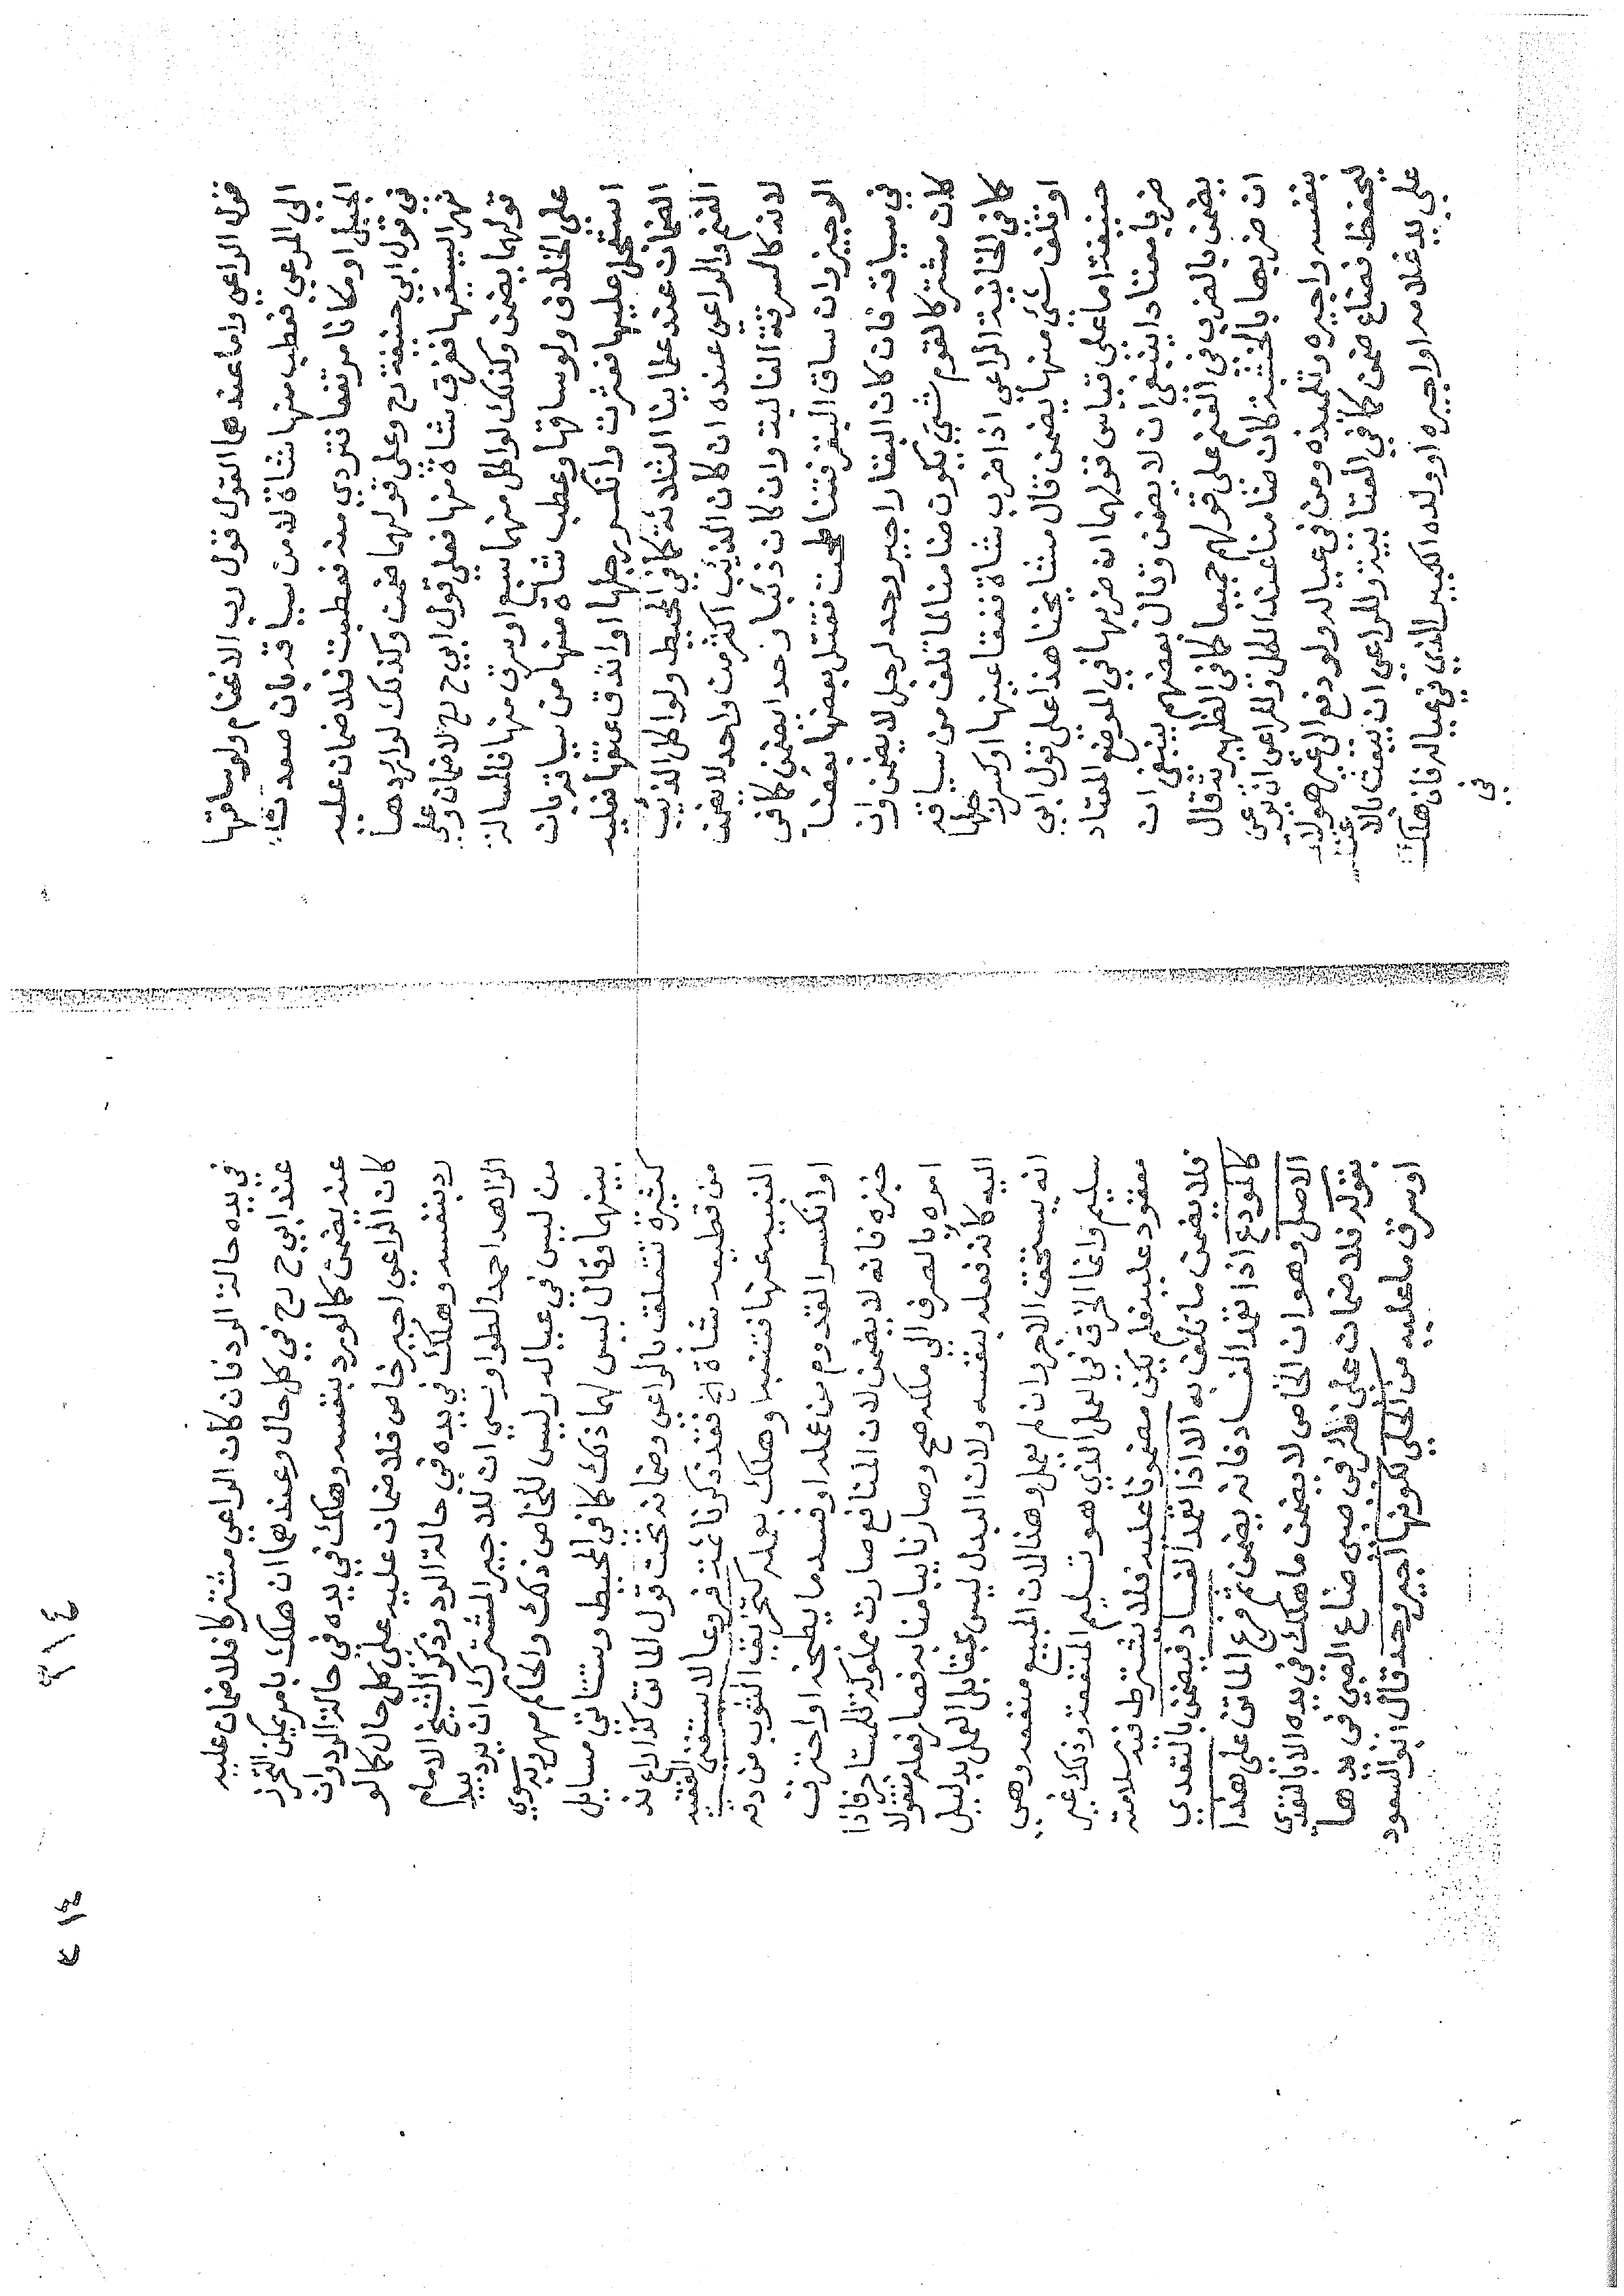 قوله الراعي واما عندهما القول قول رب الاغنام ولو ساقها
الى المرعي فعطب منها شاة لا من سياقه بان صعدت
الجبل او مكانا مرتفعا فتردي منه فعطبت فلا ضمان عليه
في قول ابي حنيفة رح وعلى قولهما ضمن وكذلك لو اوردها
نهر اليسقيها فغرق شاة منها فعلي قول ابي ح رح لا ضمان وعلى
قولهما يضمن وكذلك لو اكل منهما سبع او سرق منها فالمسالة
على الخلاف ولو ساقها وعطب شاة منها من سياقه بان
استعجل عليها فعثرت وانكسر رجلها او اندق عنقها فعليه
الضمان عند علمائنا الثلاثة كما في المحيط ولو اكل الذئب
الغنم والراعي عنده ان كان الذئب اكثر من واحد لا يضمن
لانه كالسرقة الغالبة وان كان ذئبا واحدا يضمن كما في
الوجيز وان ساق البقر فتناطحت فقتل بعضها بعضا
في سياقه فان كان البقار اجير وحد لرجل لا يضمن وان
كان مشتركا لقوم شتي يكون ضامنا لما تلف من سياقه
كما في الخانية الراعي اذا ضرب شاة ففقا عينها او كسر رجلها
او تلف شئ منها يضمن قال مشايخنا هذا على قول ابي
حنيفة اما على قياس قولهما ان ضربها في الموضع المعتاد
ضربا معتادا ينبغي ان لا يضمن وقال بعضهم ينبغي ان
يضمن بالضرب في الغنم على قولهم جميعا كما في الظهيرية قال
ان ضربها بالخشبة كان ضامنا عند الكل وللراعي ان يرعي
بنفسه واجيره وتلميذه ومن في عياله ولو دفع الى غير هولاء
ليحفظ فضاع ضمن كما في العتابية وللراعي ان يبعث بالاغنام
على يد غلامه او اجيره او ولده الكبير الذي في عياله فان هلكت
في
في يده حالة الرد فان كان الراعي مشتركا فلا ضمان عليه
عند ابي ح رح في كل حال وعندهما ان هلك بامر يمكن التحرز
عنه يضمن كما لو رد بنفسه وهلك في يده في حالة الرد وان
كان الراعي اجير خاص فلا ضمان عليه على كل حال كما لو
رد بنفسه وهلك في يده في حالة الرد وذكر الشيخ الامام
الزاهد احمد الطواويسي ان للاجير المشترك ان يرد بيد
من ليس في عياله وليس للخاص ذلك والحاكم مهرويه سوي
بينهما وقال ليس لهما ذلك كما في المحيط وستاتي مسايل
كثيرة تتعلق بالراعي وضمانه تحت قول الماتن كذا راع ند
من قطيعه شاة الخ فقد ذكرنا ثمة فروعا لا يستغني الفقيه
التنبيه عنها فتنبه او هلك بعمله كتخريق الثوب من دقه
او انكسر القدوم من عمله او فسد ما يطبخه او احترق
خبزه فانه لا يضمن لان المنافع صارت مملوكة للمستاجر فاذا
امره بالصرف الى ملكه صح وصار نايبا منابه فصار فعله منقولا
اليه كانه فعله بنفسه ولان البدل ليس بمقابل العمل بدليل
انه يستحق الاجر وان لم يعمل وهذا لان المبيع منفعته وهي
سليم وانما الخرق في العمل الذي هو تسليم المنفعة وذلك غير
معقود عليه فلم يكن مضمونا عليه فلا تشترط فيه سلامته
فلا يضمن ما تلف به الا اذا تعمد الفساد فيضمن بالتعدي
كالمودع اذا تعمد الفساد فانه يضمن ثم فرع الماتن على هذا
الاصل وهو ان الخاص لا يضمن ما هلك في يده الا بالتعدي
بقوله فلا ضمان على ظئر في صبي ضاع الصبي في يدها
او سرق ما عليه من الحلي لكونها اجير وحد قال ابو السعود
٣١٤